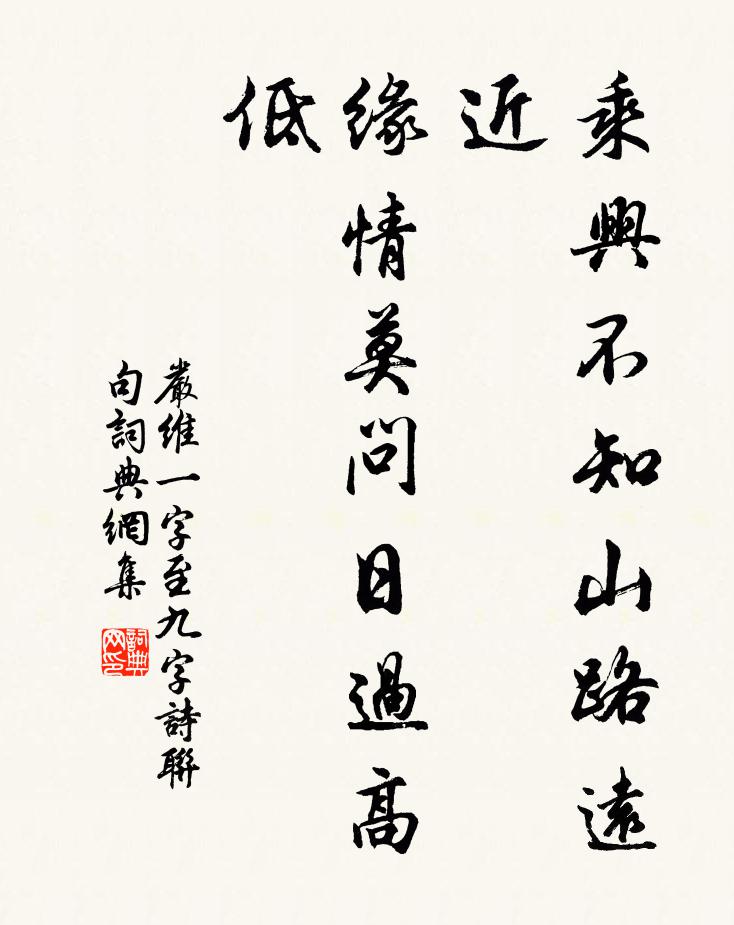 乘興不知山路遠
近
緣情莫問日過高
低
嚴維一字至九字詩聯
句詞典網集
詞典
网印